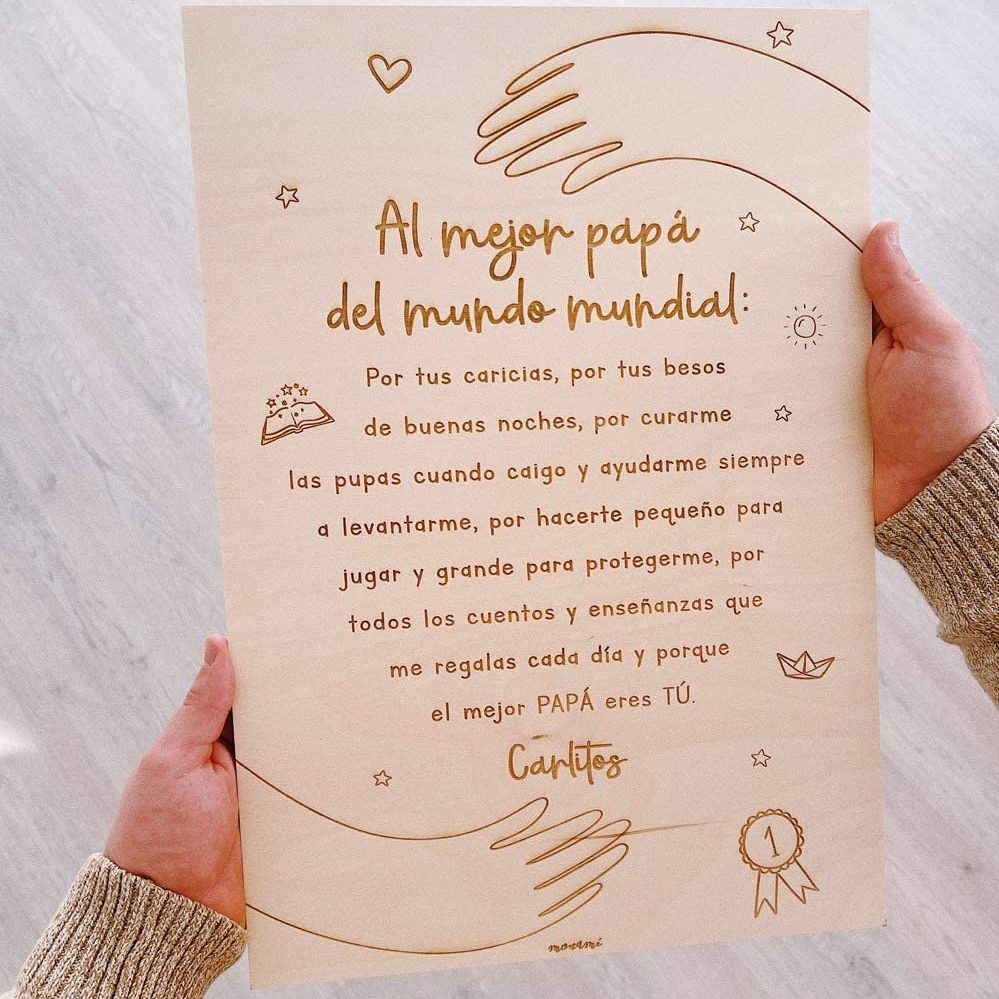 Al mejor papá
del mundo mundial:
Por tus caricias, por tus besos
de buenas noches, por curarme
las pupas cuando caigo y ayudarme siempre
a levantarme, por hacerte pequeño para
jugar y grande para protegerme, por
todos los cuentos y enseñanzas que
me regalas cada día y porque
el mejor PAPÁ eres TÚ.
Carlitos
1